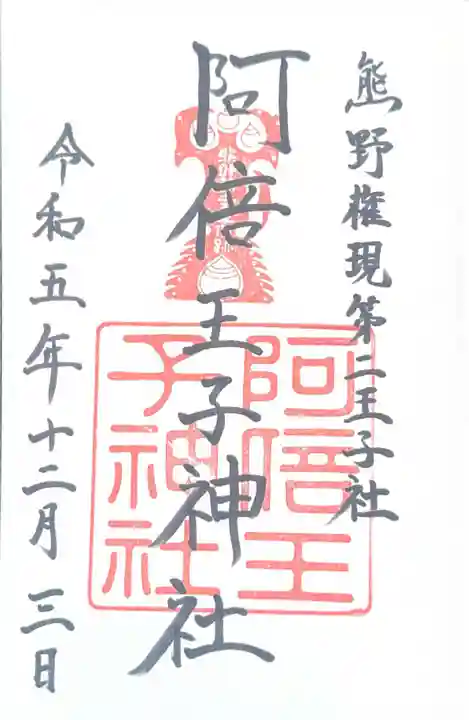 熊野権現第二王子社
阿倍王子神社
令和五年十二月三日
阿倍王
子神社